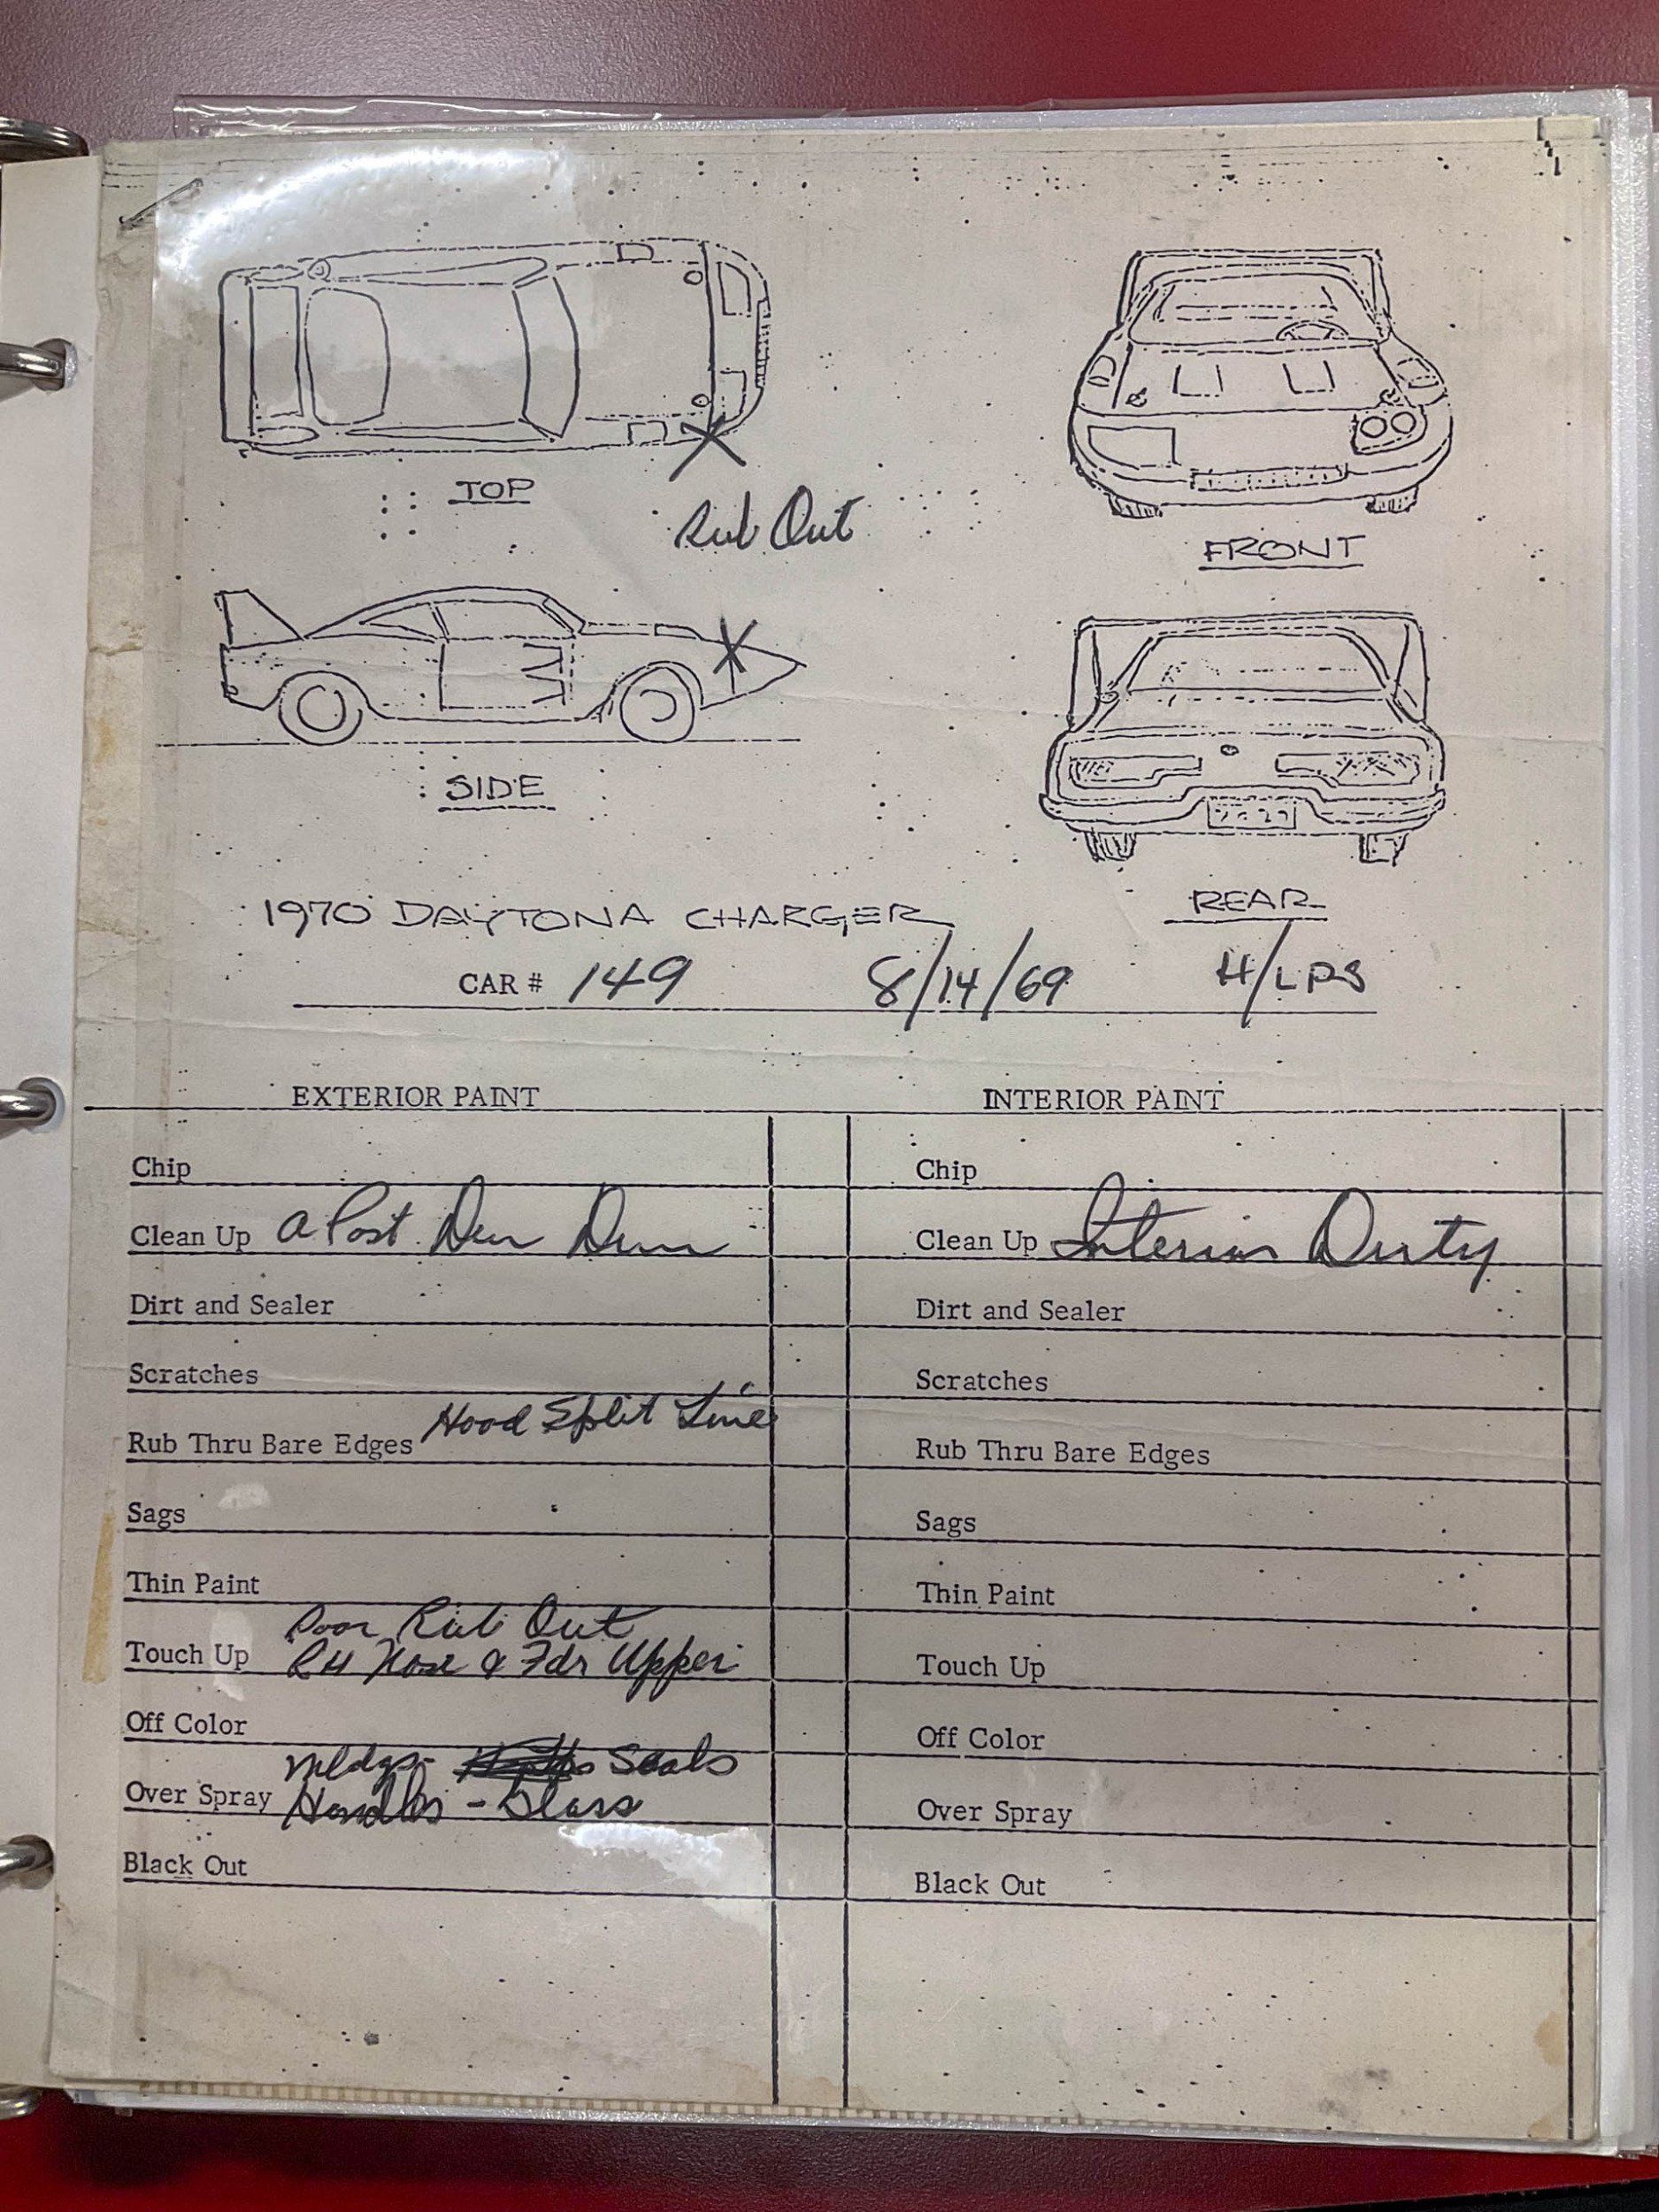 TOP
Rub Out
FRONT
SIDE
REAR
1970 DAYTONA CHARGER
CAR # 149 8/14/69 H/LPS
EXTERIOR PAINT
INTERIOR PAINT
Chip
Clean Up A Post
Dirt and Sealer
Scratches
Hood Split Line
Rub Thru Bare Edges
Sags
Thin Paint
Poor Rub Out
Touch Up RH Nose & Fdr Upper
Off Color
Mldgs - Seals
Over Spray Handles - Glass
Black Out
Chip
Clean Up Interior Dirty
Dirt and Sealer
Scratches
Rub Thru Bare Edges
Sags
Thin Paint
Touch Up
Off Color
Over Spray
Black Out